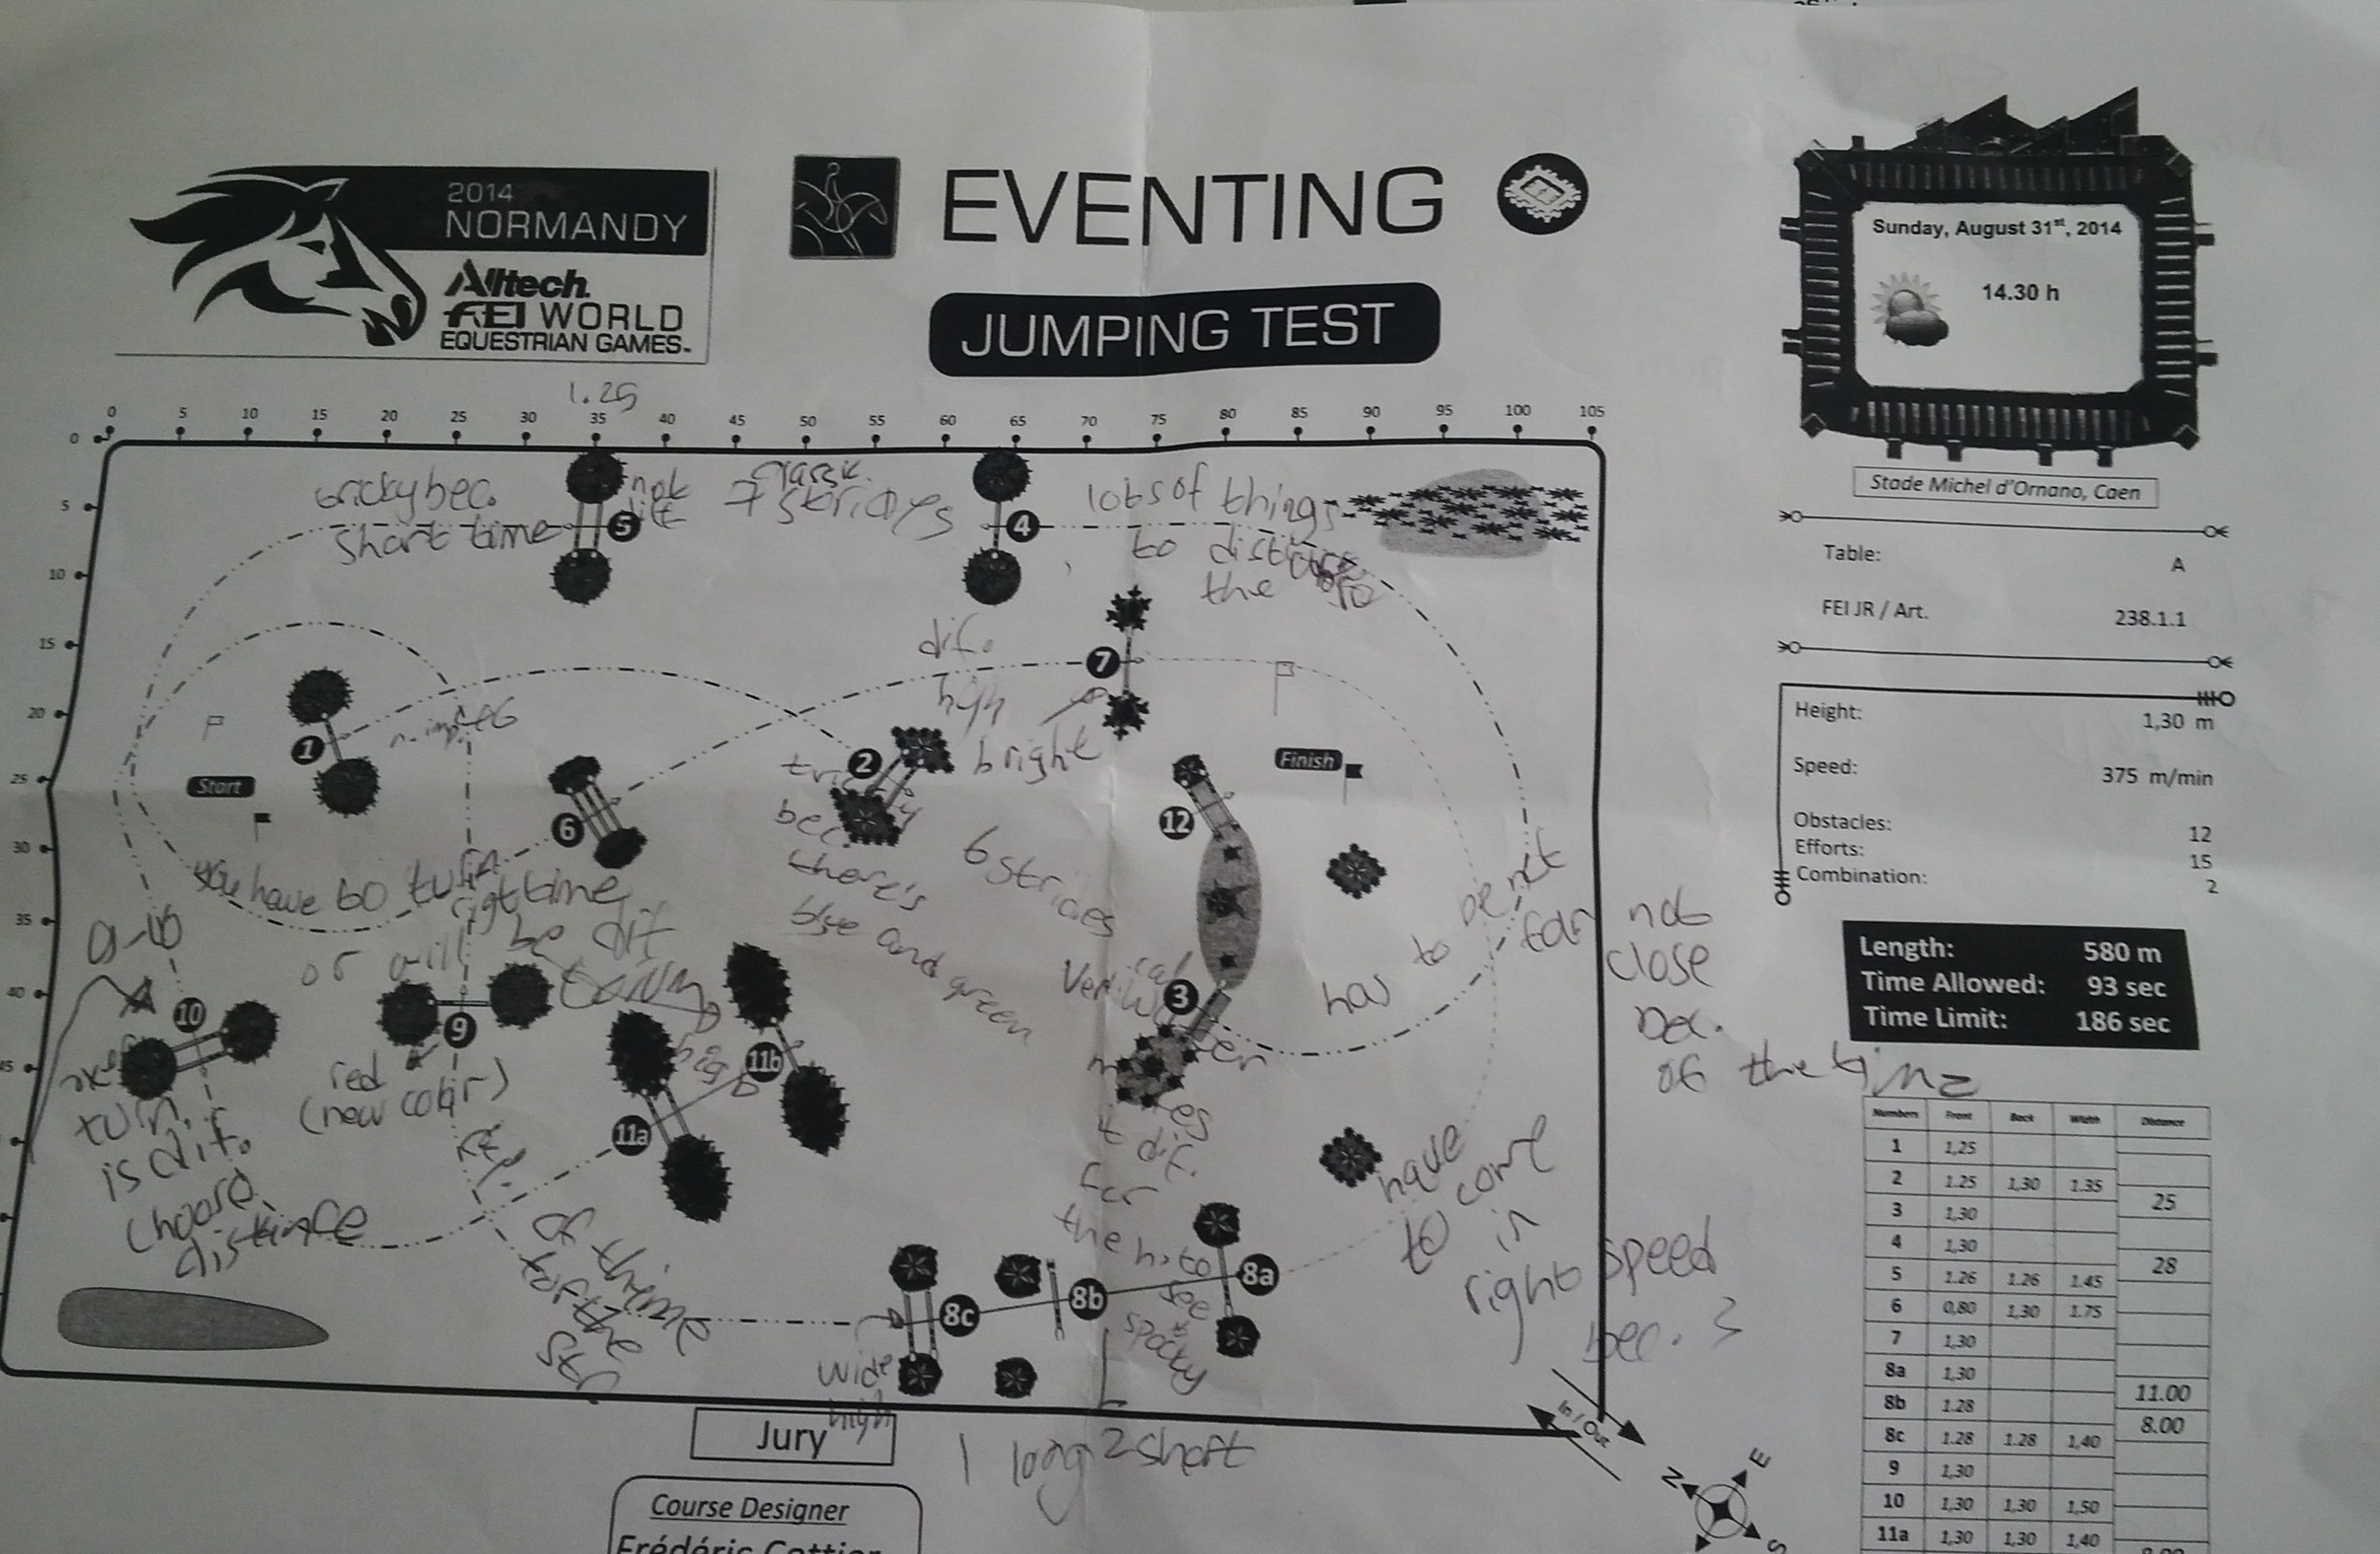 2014
NORMANDY
Alltech
FEI WORLD
EQUESTRIAN GAMES
EVENTING
JUMPING TEST
Sunday, August 31st, 2014
14.30 h
Stade Michel d'Ornano, Caen
Table: A
FEI JR / Art. 238.1.1
Height: 1,30 m
Speed: 375 m/min
Obstacles: 12
Efforts: 15
Combination: 2
Length: 580 m
Time Allowed: 93 sec
Time Limit: 186 sec
Numbers Front Back Width Distance
1 1,25
2 1.25 1,30 1.35
25
3 1,30
4 1,30
28
5 1.26 1.26 1.45
6 0,80 1,30 1.75
7 1,30
8a 1,30
11.00
8b 1.28
8.00
8c 1.28 1.28 1,40
9 1,30
10 1,30 1,30 1,50
11a 1,30 1,30 1,40
1.25
0 5 10 15 20 25 30 35 40 45 50 55 60 65 70 75 80 85 90 95 100 105
0
5
10
15
20
25
30
35
40
tricky bec.
short time
5
not
7 strides
4
lots of things
to
the
dif.
high
bright
7
1
Start
6
2
bec.
there's
blue and green
6 strides
12
Finish
you have to turn
right time
or will be dif
has to be not
far not
close
bec.
of the time
10
9
red
(new color)
turn
is dif.
choose
distance
11a
11b
high
3
dif.
for
the
have
to come
in
right speed
bec.
8a
8b
8c
wide
high
spooky
1 long 2 short
In / Out
N
E
S
Jury
Course Designer
Frédéric Cottier